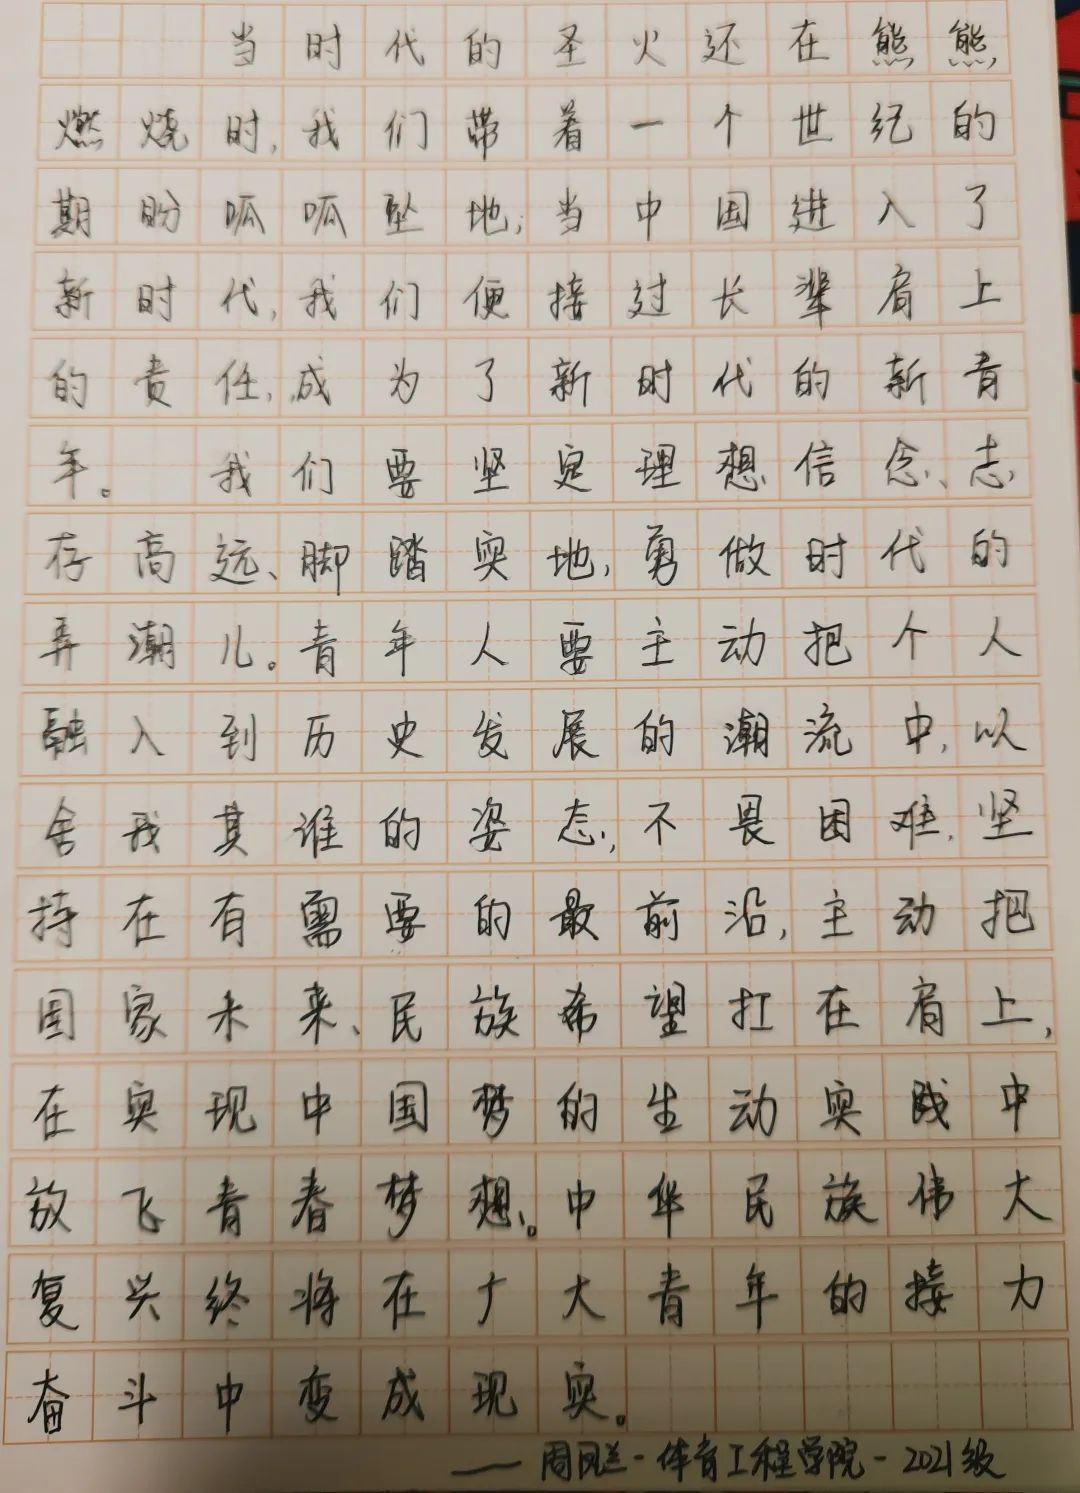 当时代的圣火还在熊熊
燃烧时,我们带着一个世纪的
期盼呱呱坠地;当中国进入了
新时代,我们便接过长辈肩上
的责任,成为了新时代的新青
年。 我们要坚定理想信念、志
存高远、脚踏实地,勇做时代的
弄潮儿。青年人要主动把个人
融入到历史发展的潮流中,以
舍我其谁的姿态,不畏困难,坚
持在有需要的最前沿,主动把
国家未来、民族希望扛在肩上,
在实现中国梦的生动实践中
放飞青春梦想。中华民族伟大
复兴终将在广大青年的接力
奋斗中变成现实。
——周凤兰-体育工程学院-2021级